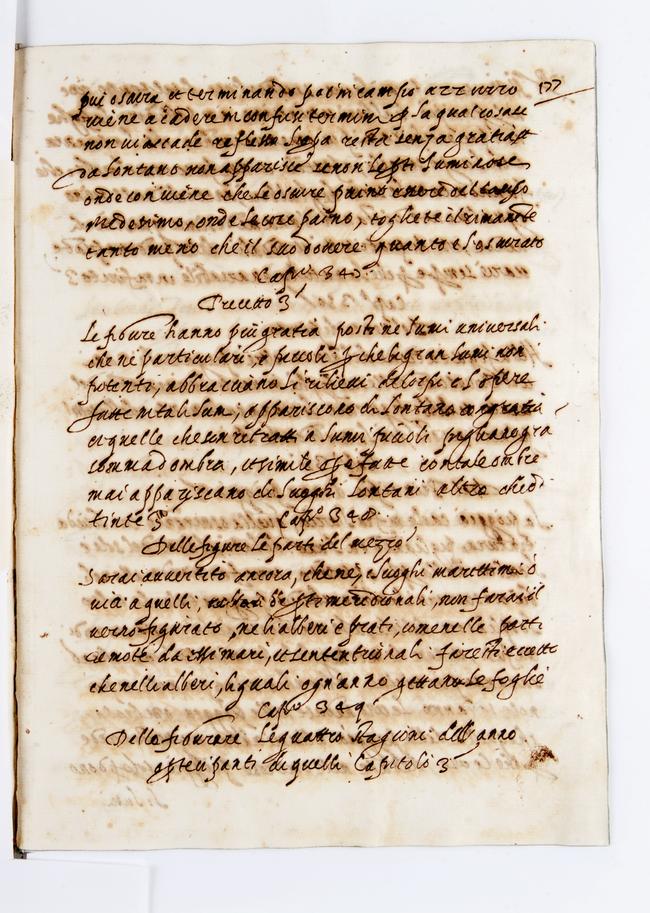 piu oscura et terminando poi in campo azzurro
viene a cadere in confusi termini la qual cosa
non vi accade reflesso resta senza gratia
da lontano non apparisce se non le parti luminose
onde conviene che le oscure paino del campo
medesimo, onde le cose paino, togliete il rimanente
tanto meno che il suo dovere quanto è l'oscurato
Cap.º 34
Precetto 3
Le figure hanno più gratia posti ne lumi universali
che ne particulari, e piccoli che li gran lumi non
potenti, abbracciano li rilievi de corpi e l'opere
fatte in tali lumi, appariscono di lontano con gratia
et quelle che son retratti a lumi piccoli pigliano gra
somma d ombra, et simile opere fatte con tale ombre
mai appariscano de luoghi lontani altro che di
tinte 3 Cap.º 348
Delle figure le parti del mezzo
Sarai avvertito ancora, che ne luoghi marittimi ò
vici a quelli, meridionali, non farai il
verno figurato, ne li alberi e prati, come nelle parti
remote da mari, et settentrionali faresti eccetto
che nelli alberi, li quali ogn'anno gettano le foglie
Cap.º 349
Dello figurare le quattro stagioni dell'anno
partecipanti di quelli Capitolo 3